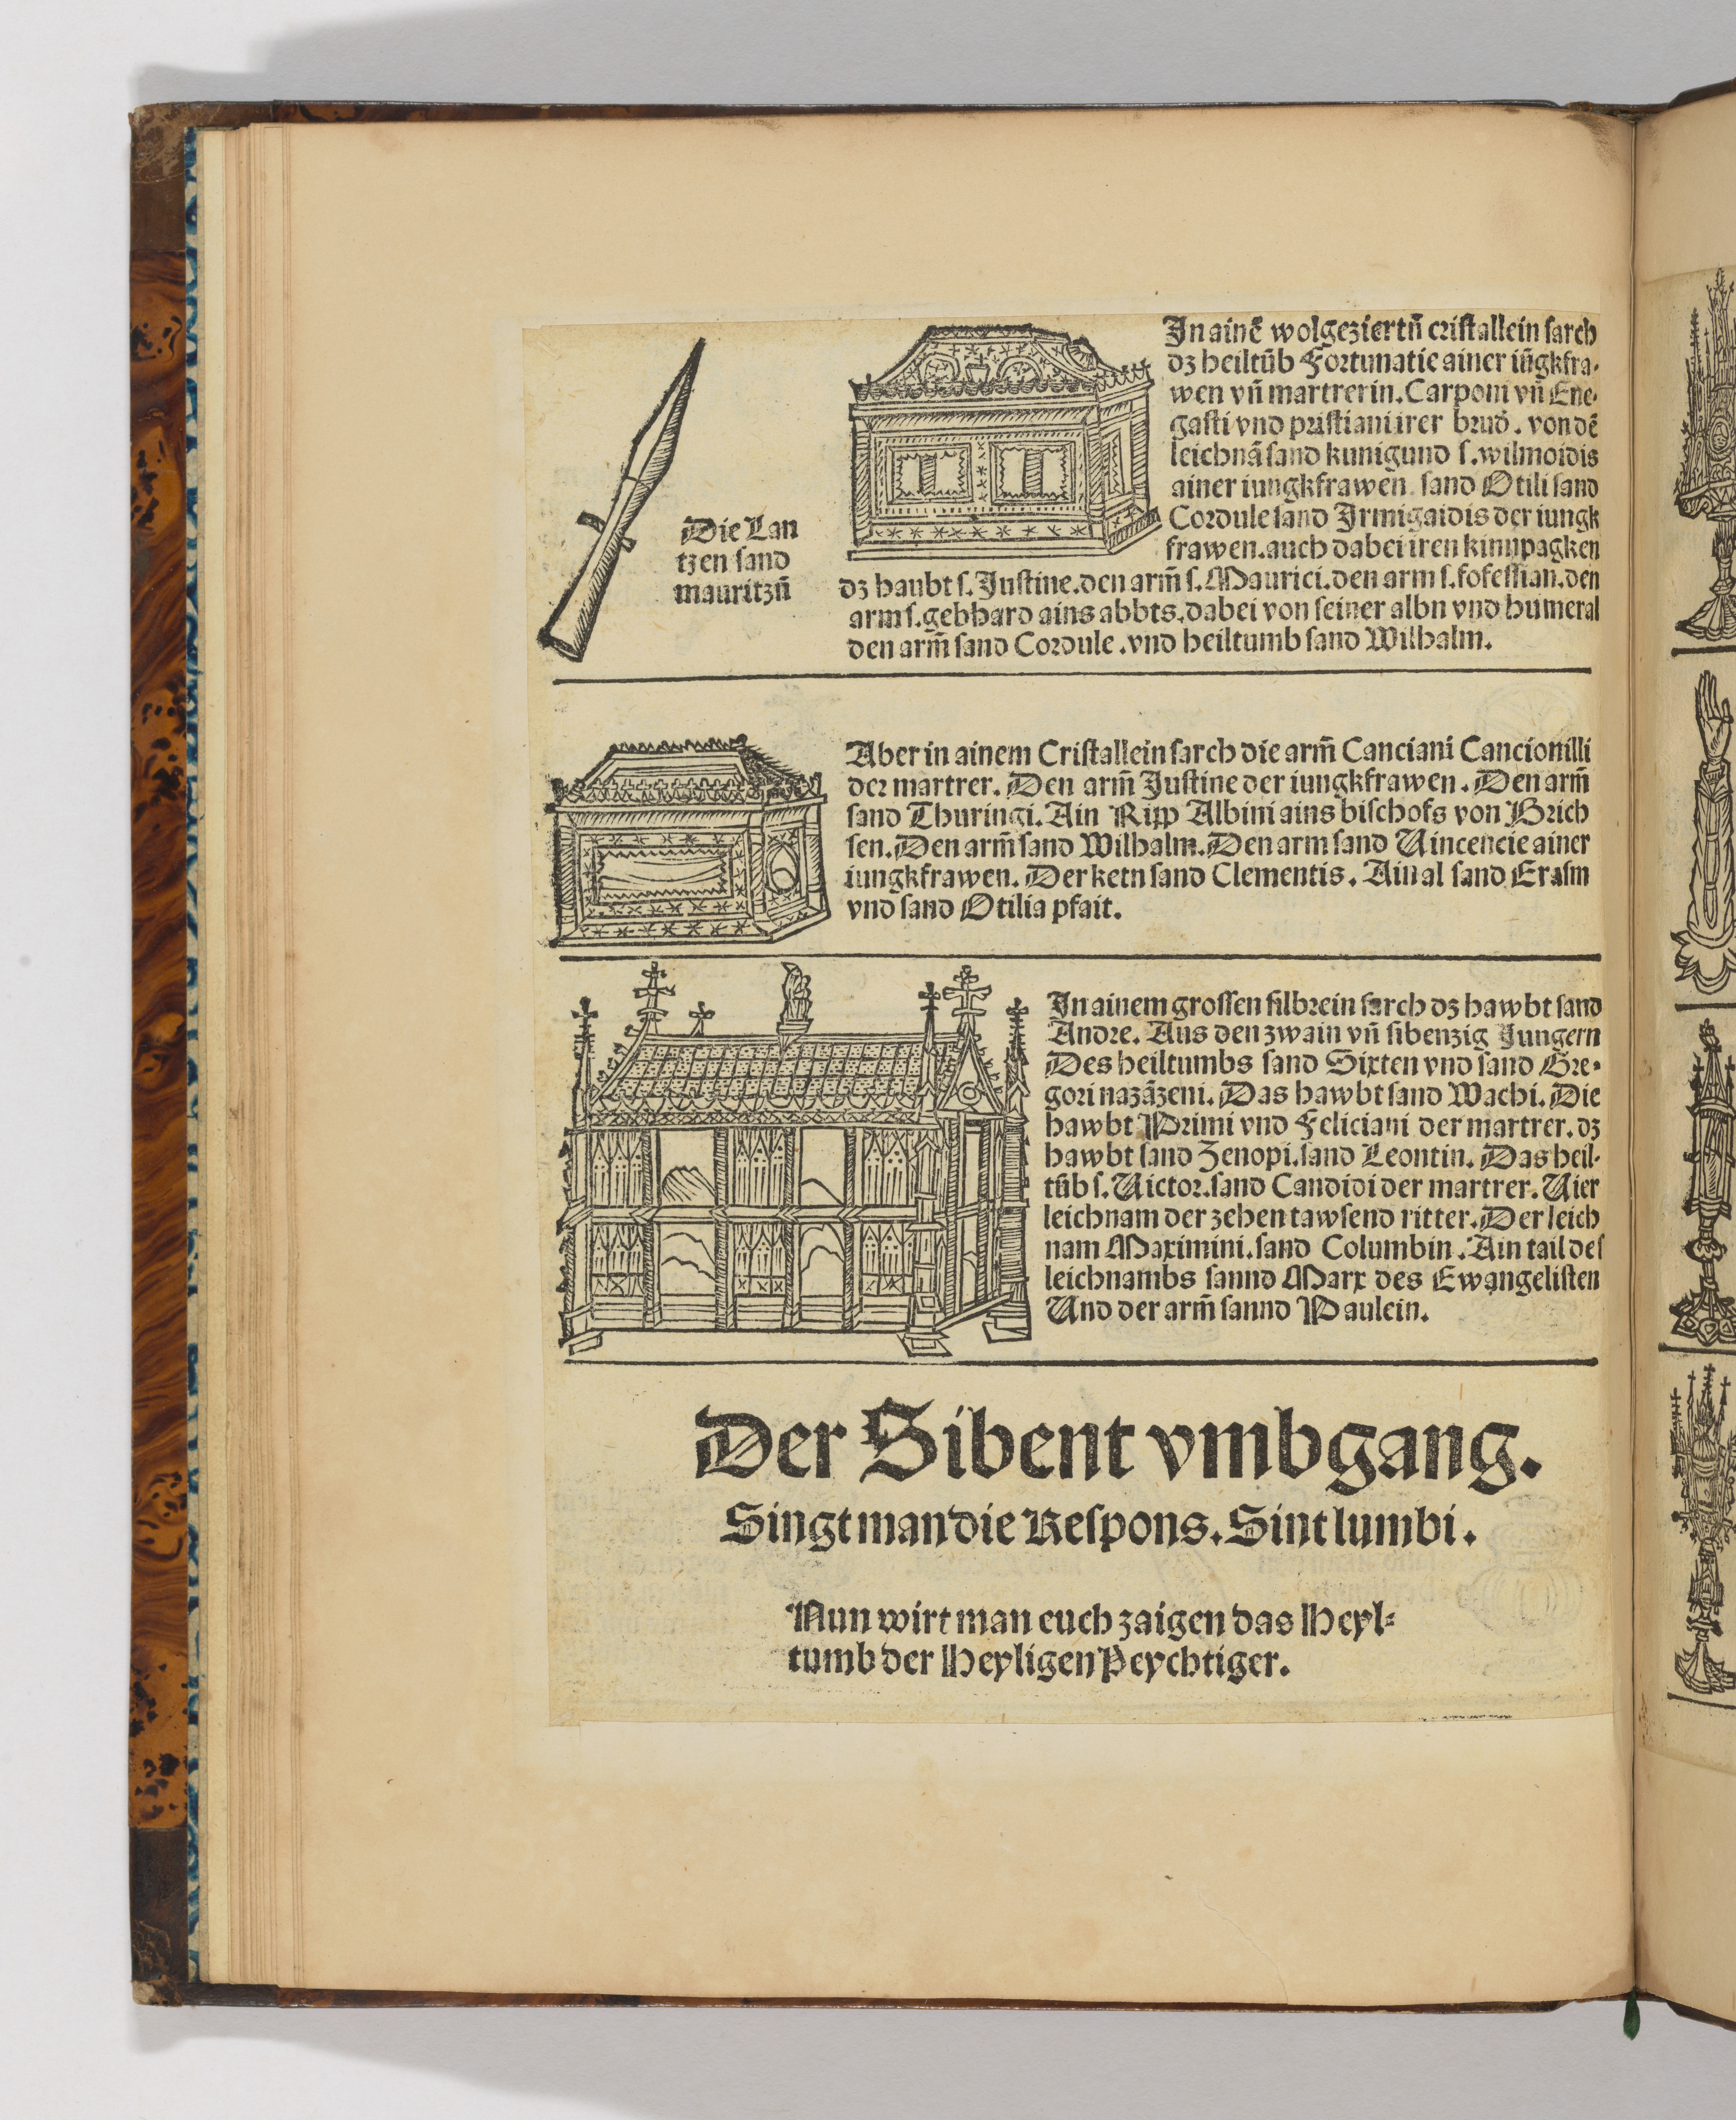 Die Lan
tzen sand
mauritzñ
In ainē wolgeziertñ cristallein sarch
dz heiltūb Fortunatie ainer iūgkfra-
wen vñ martrerin. Carponi vñ Ene-
gasti vnd pristiani irer brud̄. von dē
leichnā sand kunigund s. wilmoidis
ainer iungkfrawen. sand Otili sand
Cordule sand Irmigaidis der iungk
frawen. auch dabei iren kinnpagken
dz haubt s. Justine. den arm̄ s. Maurici. den arm s. fofessian. den
arm s. gebhard ains abbts. dabei von seiner albn vnd humeral
den arm̄ sand Cordule. vnd heiltumb sand Wilhalm.
Aber in ainem Cristallein sarch die arm̄ Canciani Cancionilli
der martrer. Den arm̄ Justine der iungkfrawen. Den arm̄
sand Thuringi. Ain Ripp Albini ains bischofs von Brich
sen. Den arm̄ sand Wilhalm. Den arm sand Vincencie ainer
iungkfrawen. Der ketn sand Clementis. Ain al sand Erasm
vnd sand Otilia pfait.
In ainem grossen silbrein sarch dz hawbt sand
Andre. Aus den zwain vñ sibenzig Jungern
Des heiltumbs sand Sixten vnd sand Gre-
gori nazāzeni. Das hawbt sand Wachi. Die
hawbt Primi vnd Feliciani der martrer. dz
hawbt sand Zenopi. sand Leontin. Das heil-
tūb s. Victor. sand Candidi der martrer. Vier
leichnam der zehen tawsend ritter. Der leich
nam Maximini. sand Columbin. Ain tail des
leichnambs sannd Marx des Ewangelisten
Vnd der arm̄ sannd Paulein.
Der Sibent vmbgang.
Singt man die Respons. Sint lumbi.
Nun wirt man euch zaigen das Heyl-
tumb der Heyligen Peychtiger.